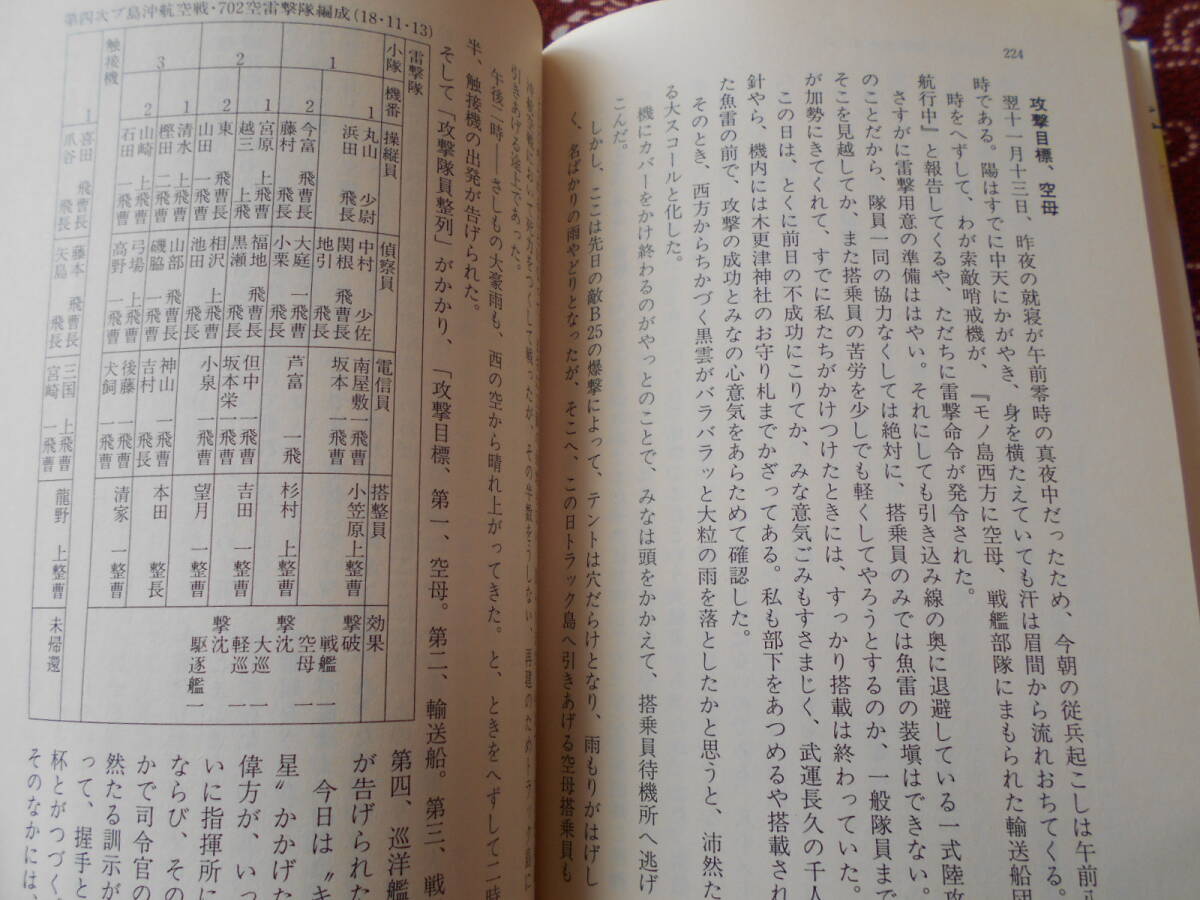 224
攻撃目標、空母
翌十一月十三日、昨夜の就寝が午前零時の真夜中だったため、今朝の従兵起こしは午前八
時である。陽はすでに中天にかがやき、身を横たえていても汗は眉間から流れおちてくる。
時をへずして、わが索敵哨戒機が、『モノ島西方に空母、戦艦部隊にまもられた輸送船団
航行中』と報告してくるや、ただちに雷撃命令が発令された。
さすがに雷撃用意の準備ははやい。それにしても引き込み線の奥に退避している一式陸攻
のことだから、隊員一同の協力なくしては絶対に、搭乗員のみでは魚雷の装塡はできない。
そこを見越してか、また搭乗員の苦労を少しでも軽くしてやろうとするのか、一般隊員まで
が加勢にきてくれて、すでに私たちがかけつけたときには、すっかり搭載は終わっていた。
この日は、とくに前日の不成功にこりてか、みな意気ごみもすさまじく、武運長久の千人
針やら、機内には木更津神社のお守り札までかざってある。私も部下をあつめるや搭載され
た魚雷の前で、攻撃の成功とみなの心意気をあらためて確認した。
そのとき、西方からちかづく黒雲がバラバラッと大粒の雨を落としたかと思うと、沛然た
る大スコールと化した。
機にカバーをかけ終わるのがやっとのことで、みなは頭をかかえて、搭乗員待機所へ逃げ
こんだ。
しかし、ここは先日の敵B25の爆撃によって、テントは穴だらけとなり、雨もりがはげし
く、名ばかりの雨やどりとなったが、そこへ、この日トラック島へ引きあげる空母搭乗員も
引きあげる途上であった。
午後一時——さしもの大豪雨も、西の空から晴れ上がってきた。と、ときをへずして二時
半、触接機の出発が告げられた。
そして「攻撃隊員整列」がかかり、「攻撃目標、第一、空母。第二、輸送船。第三、戦
第四次ブ島沖航空戦・702空雷撃隊編成(18・11・13)
雷撃隊
小隊 機番 操縦員 偵察員 電信員 搭整員 効果
1 1 丸山 少尉 中村 少佐 南屋敷 一飛曹 小笠原 上整曹 撃破 戦艦一
浜田 飛長 関根 飛曹長 坂本 一飛曹
地引 飛長
2 今富 飛曹長 大庭 一飛曹 芦富 一飛 杉村 上整曹 撃沈 空母一
藤村 飛長 小栗 飛長 大巡一
2 1 宮原 上飛曹 福地 飛曹長 但中 一飛曹 吉田 一整曹 軽巡一
越三 上飛 黒瀬 一飛曹 坂本栄 一飛曹
2 東 飛曹長 相沢 上飛曹 小泉 一飛曹 望月 一整曹 撃沈 駆逐艦一
山田 一飛曹 池田 飛長
3 1 清水 上飛曹 山部 飛曹長 神山 一飛曹 本田 整長
樫田 二飛曹 磯脇 飛長 吉村 飛長
2 山崎 上飛曹 弓場 上飛曹 後藤 一飛曹 清家 一整曹
石田 一飛曹 高野 一飛曹 犬飼 一飛曹
触接機 1 喜田 飛曹長 藤本 飛曹長 三国 上飛曹 龍野 上整曹 未帰還
爪谷 飛長 矢島 飛長 宮崎 一飛曹
第四、巡洋艦
が告げられた
今日は〝キ
星〟かかげた
偉方が、いっ
いに指揮所に
ならび、その
かで司令官の
然たる訓示が
って、握手と
杯とがつづく
そのなかには、